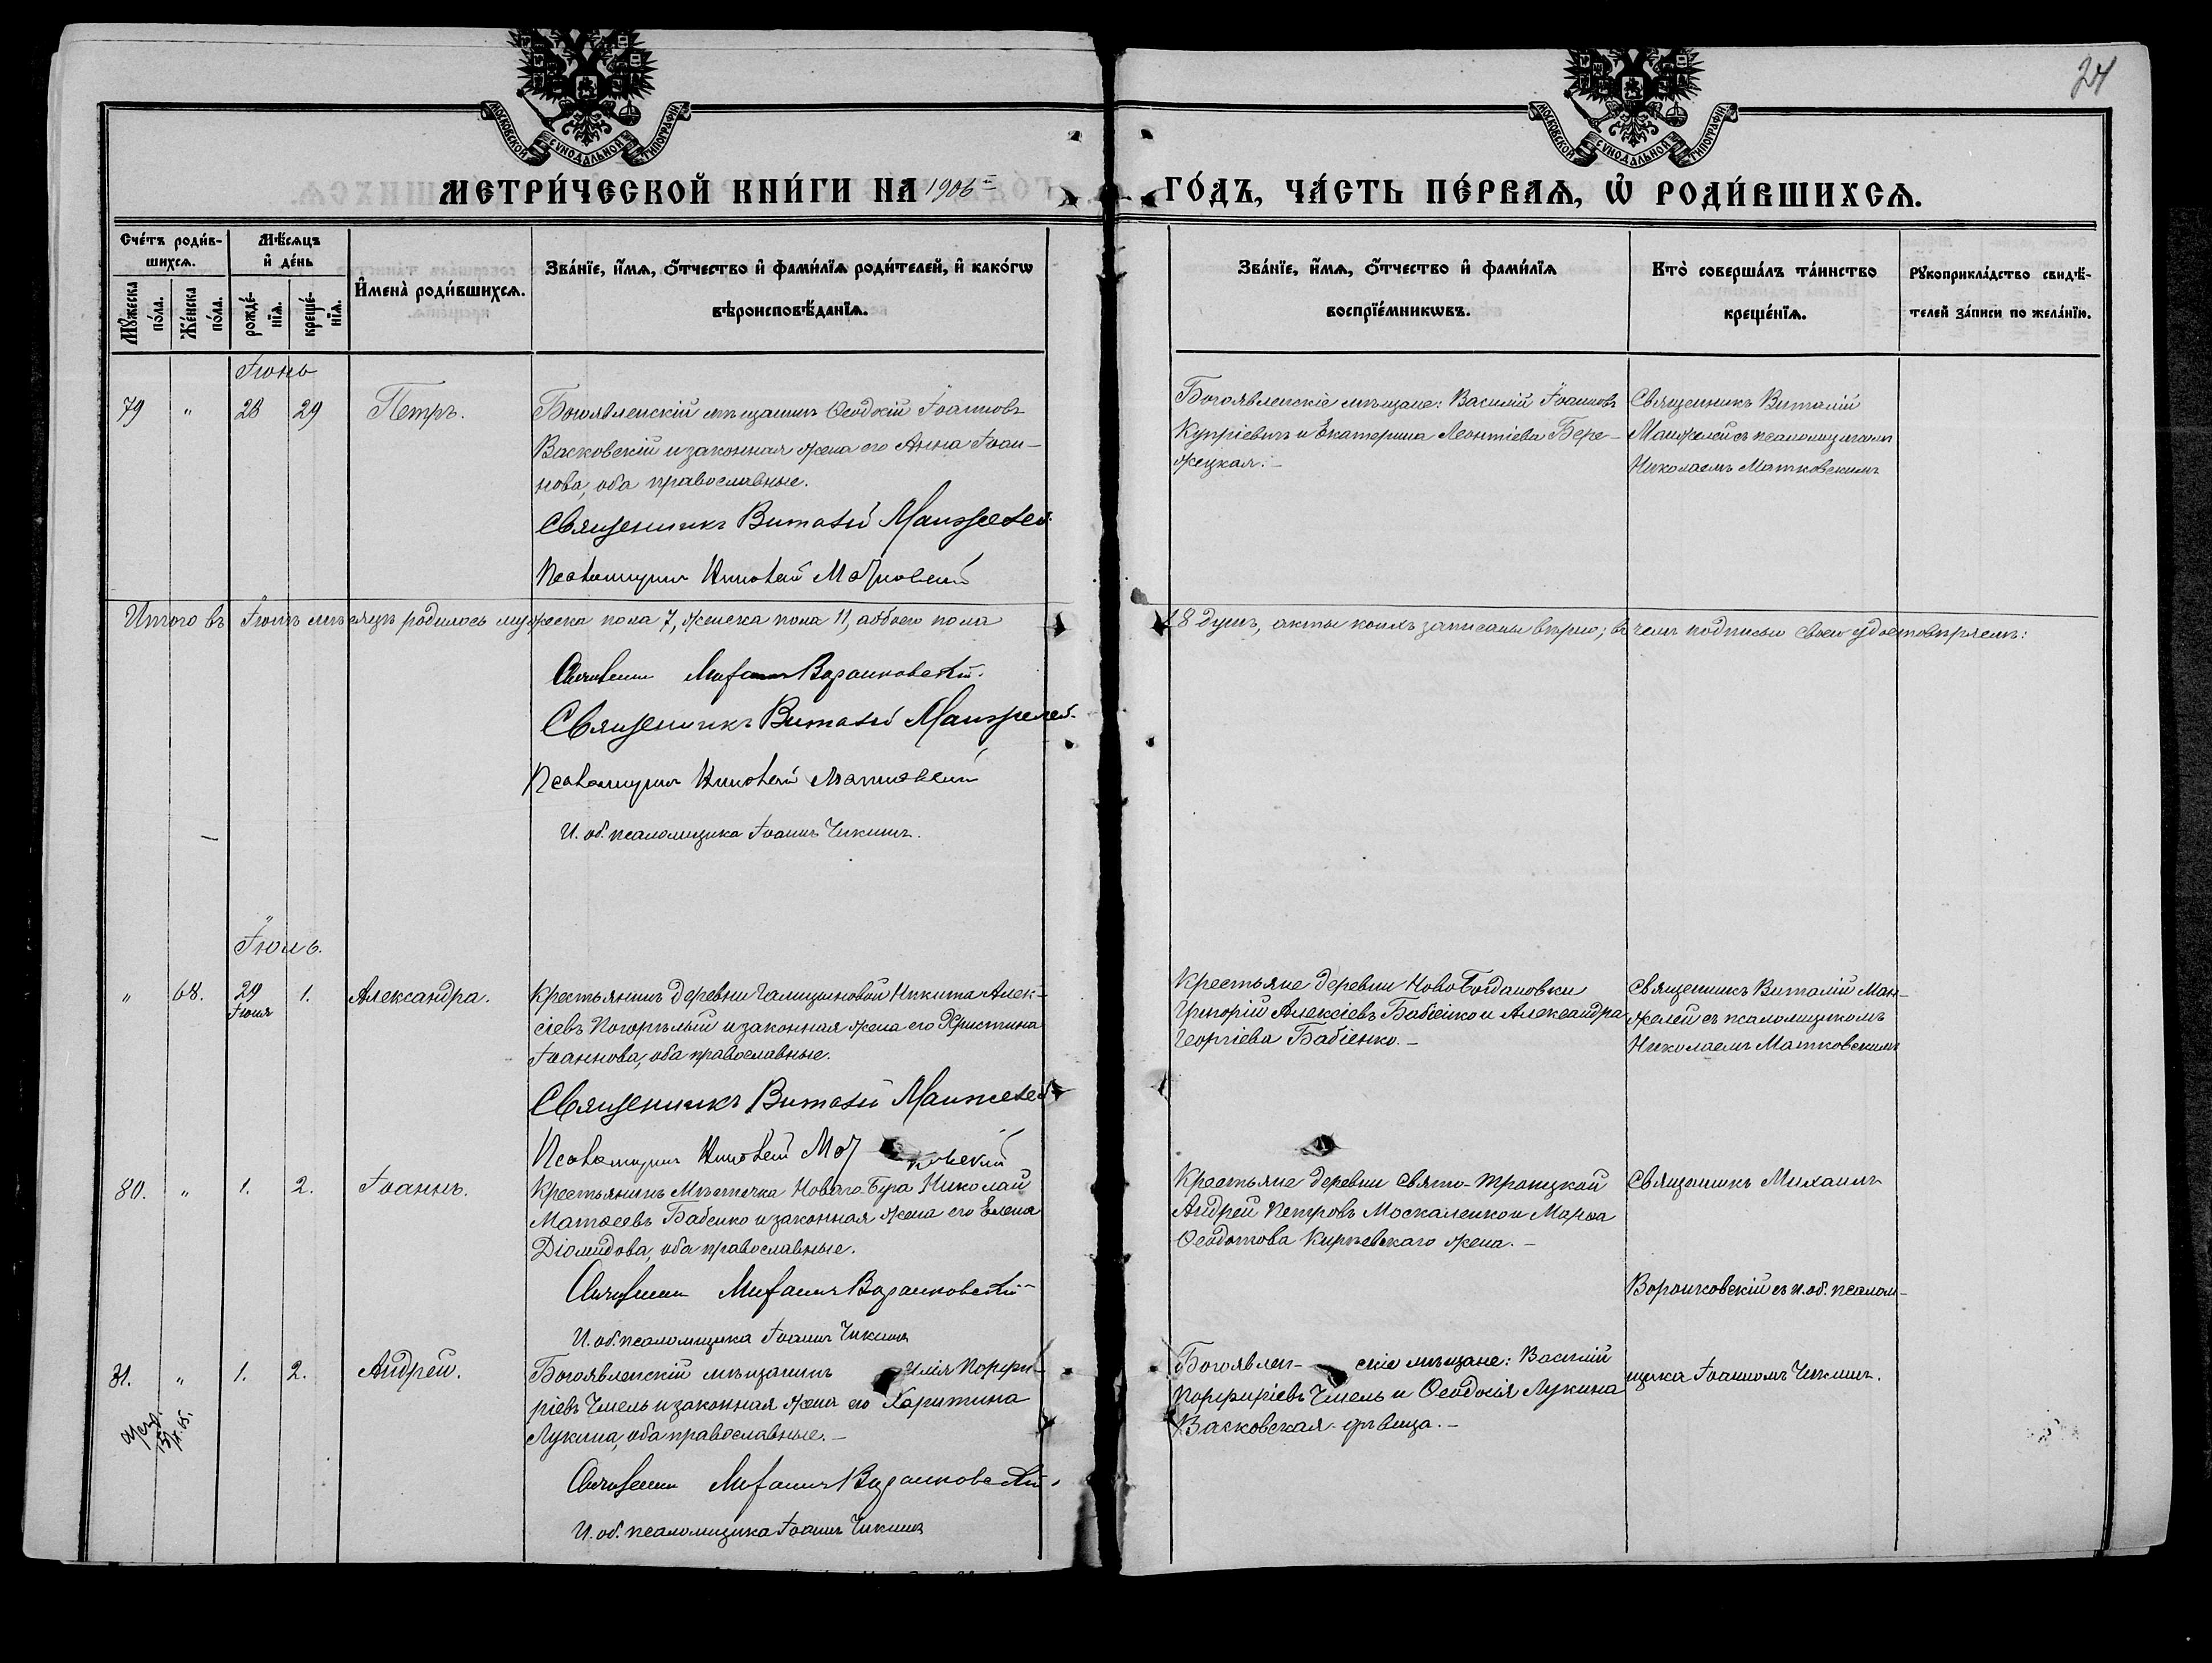 24
МОСКОВСКОЙ СѴНОДАЛЬНОЙ ТИПОГРАФІИ
МОСКОВСКОЙ СѴНОДАЛЬНОЙ ТИПОГРАФІИ
МЕТРИ́ЧЕСКОЙ КНИ́ГИ НА 1906 ГО́ДЪ, ЧА́СТЬ ПЕ́РВАѦ, Ѡ҆ РОДИ́ВШИХСѦ.
Сче́тъ роди́в-
шихсѧ.
Мꙋ́жеска по́ла.
Же́нска по́ла.
Мѣ́сѧцъ
и҆ де́нь
рожде́-
нїѧ.
креще́-
нїѧ.
И҆мена̀ роди́вшихсѧ.
Зва́нїе, и҆́мѧ, ѻ҆́тчество и҆ фами́лїѧ роди́телей, и҆ како́гѡ
вѣроисповѣ́данїѧ.
Зва́нїе, и҆́мѧ, ѻ҆́тчество и҆ фами́лїѧ
воспрїе́мникѡвъ.
Кто̀ соверша́лъ та́инство
креще́нїѧ.
Рꙋкоприкла́дство свидѣ́-
телей за́писи по жела́нїю.
Іюнь
79 " 28 29 Петръ.
Богоявленскій мѣщанинъ Ѳеодосій Іоанновъ
Васковскій и законная жена его Анна Іоан-
нова, оба православные.
Священникъ Виталій Манжелей
Псаломщикъ Николай Матковскій
Богоявленскіе мѣщане: Василій Іоанновъ
Купріевичъ и Екатерина Леонтіева Бере-
жецкая.-
Священникъ Виталій
Манжелей съ псаломщикомъ
Николаемъ Матковскимъ
Итого въ Іюнѣ мѣсяцѣ родилось мужеска пола 7, женска пола 11, а обоего пола 18 душъ, акты коихъ записаны вѣрно; въ чемъ подписью своею удостовѣряемъ:
Священникъ Михаилъ Воронковскій.
Священникъ Виталій Манжелей.
Псаломщикъ Николай Матковскій
И. об. псаломщика Іоаннъ Чикинъ.
Іюль.
" 68. 29 Іюня 1. Александра.
Крестьянинъ деревни Галицыновой Никита Алек-
сіевъ Погорѣлый и законная жена его Христина
Іоаннова, оба православные.
Священникъ Виталій Манжелей
Псаломщикъ Николай Матковскій
Крестьяне деревни Ново Богдановки
Григорій Алексіевъ Бабіенко и Александра
Георгіева Бабіенко.-
Священникъ Виталій Ман-
желей съ псаломщикомъ
Николаемъ Матковскимъ
80. " 1. 2. Іоаннъ.
Крестьянинъ Мѣстечка Новаго-Буга Николай
Матѳеевъ Бабенко и законная жена его Елена
Діомидова, оба православные.
Священникъ Михаилъ Воронковскій
И. об. псаломщика Іоаннъ Чикинъ
Крестьяне деревни Свято-Троицкой
Андрей Петровъ Москаленко и Марѳа
Ѳеодотова Кирѣевскаго жена.-
Священникъ Михаилъ
Воронковскій съ и. об. псалом-
щика Іоанномъ Чикинъ.
81. " 1. 2. Андрей.
Богоявленскій мѣщанинъ Илія Порфи-
ріевъ Чмель и законная жена его Харитина
Лукина, оба православные.-
Священникъ Михаилъ Воронковскій.
И. об. псаломщика Іоаннъ Чикинъ
Богоявлен- скіе мѣщане: Василій
Порфиріевъ Чмель и Ѳеодосія Лукина
Васковская дѣвица.-